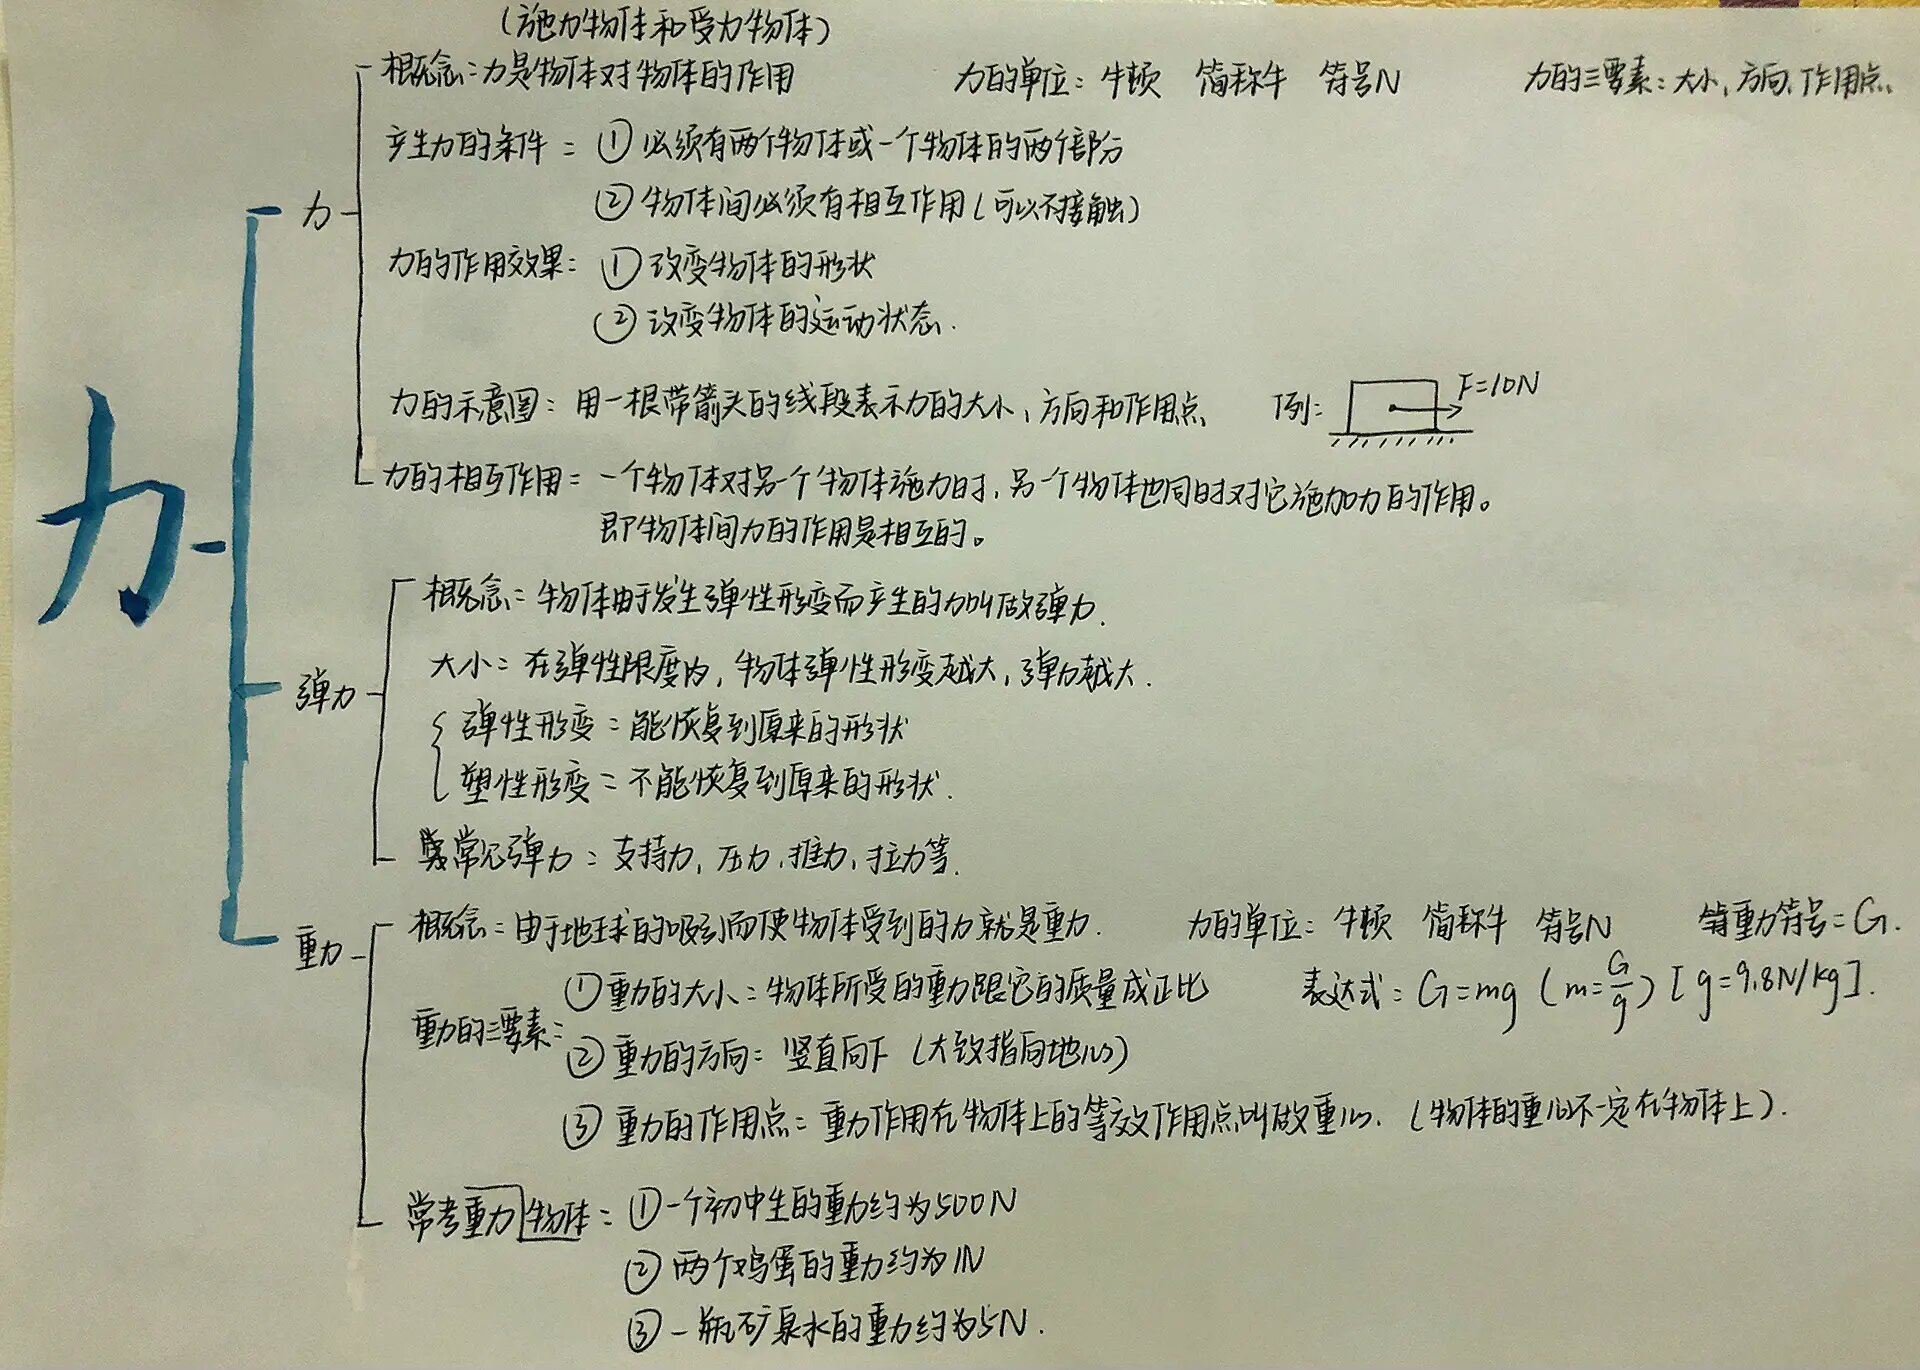 (施力物体和受力物体)
概念:力是物体对物体的作用 力的单位:牛顿 简称牛 符号N 力的三要素:大小,方向,作用点.
产生力的条件: ①必须有两个物体或一个物体的两个部分
②物体间必须有相互作用(可以不接触)
力
力的作用效果: ①改变物体的形状
②改变物体的运动状态.
力的示意图: 用一根带箭头的线段表示力的大小,方向和作用点 例: F=10N
力的相互作用: 一个物体对另一个物体施力时,另一个物体也同时对它施加力的作用。
即物体间力的作用是相互的。
力
概念:物体由于发生弹性形变而产生的力叫做弹力.
大小:在弹性限度内,物体弹性形变越大,弹力越大.
弹力
弹性形变:能恢复到原来的形状
塑性形变:不能恢复到原来的形状.
常见弹力:支持力,压力,推力,拉力等.
概念:由于地球的吸引而使物体受到的力就是重力. 力的单位:牛顿 简称牛 符号N 重力符号:G.
重力
①重力的大小:物体所受的重力跟它的质量成正比 表达式:G=mg (m=G/g) [g=9.8N/kg].
重力的三要素:
②重力的方向:竖直向下(大致指向地心)
③重力的作用点:重力作用在物体上的等效作用点叫做重心.(物体的重心不一定在物体上).
常考重力物体:①一个初中生的重力约为500N
②两个鸡蛋的重力约为1N
③一瓶矿泉水的重力约为5N.